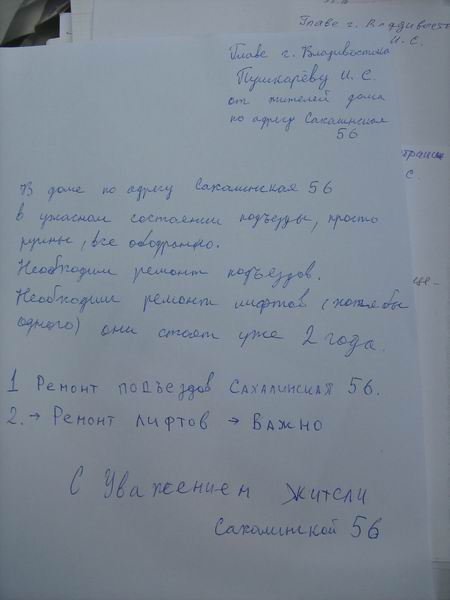 Главе г. Владивост
И. С.
Главе г. Владивостока
Пушкарёву И. С.
от жителей дома
по адресу Сахалинская
56
В доме по адресу Сахалинская 56
в ужасном состоянии подъезды, просто
руины, все ободранно.
Необходим ремонт подъездов.
Необходим ремонт лифтов (хотябы
одного) они стоят уже 2 года.
1 Ремонт подъездов Сахалинская 56.
2. → Ремонт лифтов → Важно
С Уважением жители
Сахалинской 56
С.